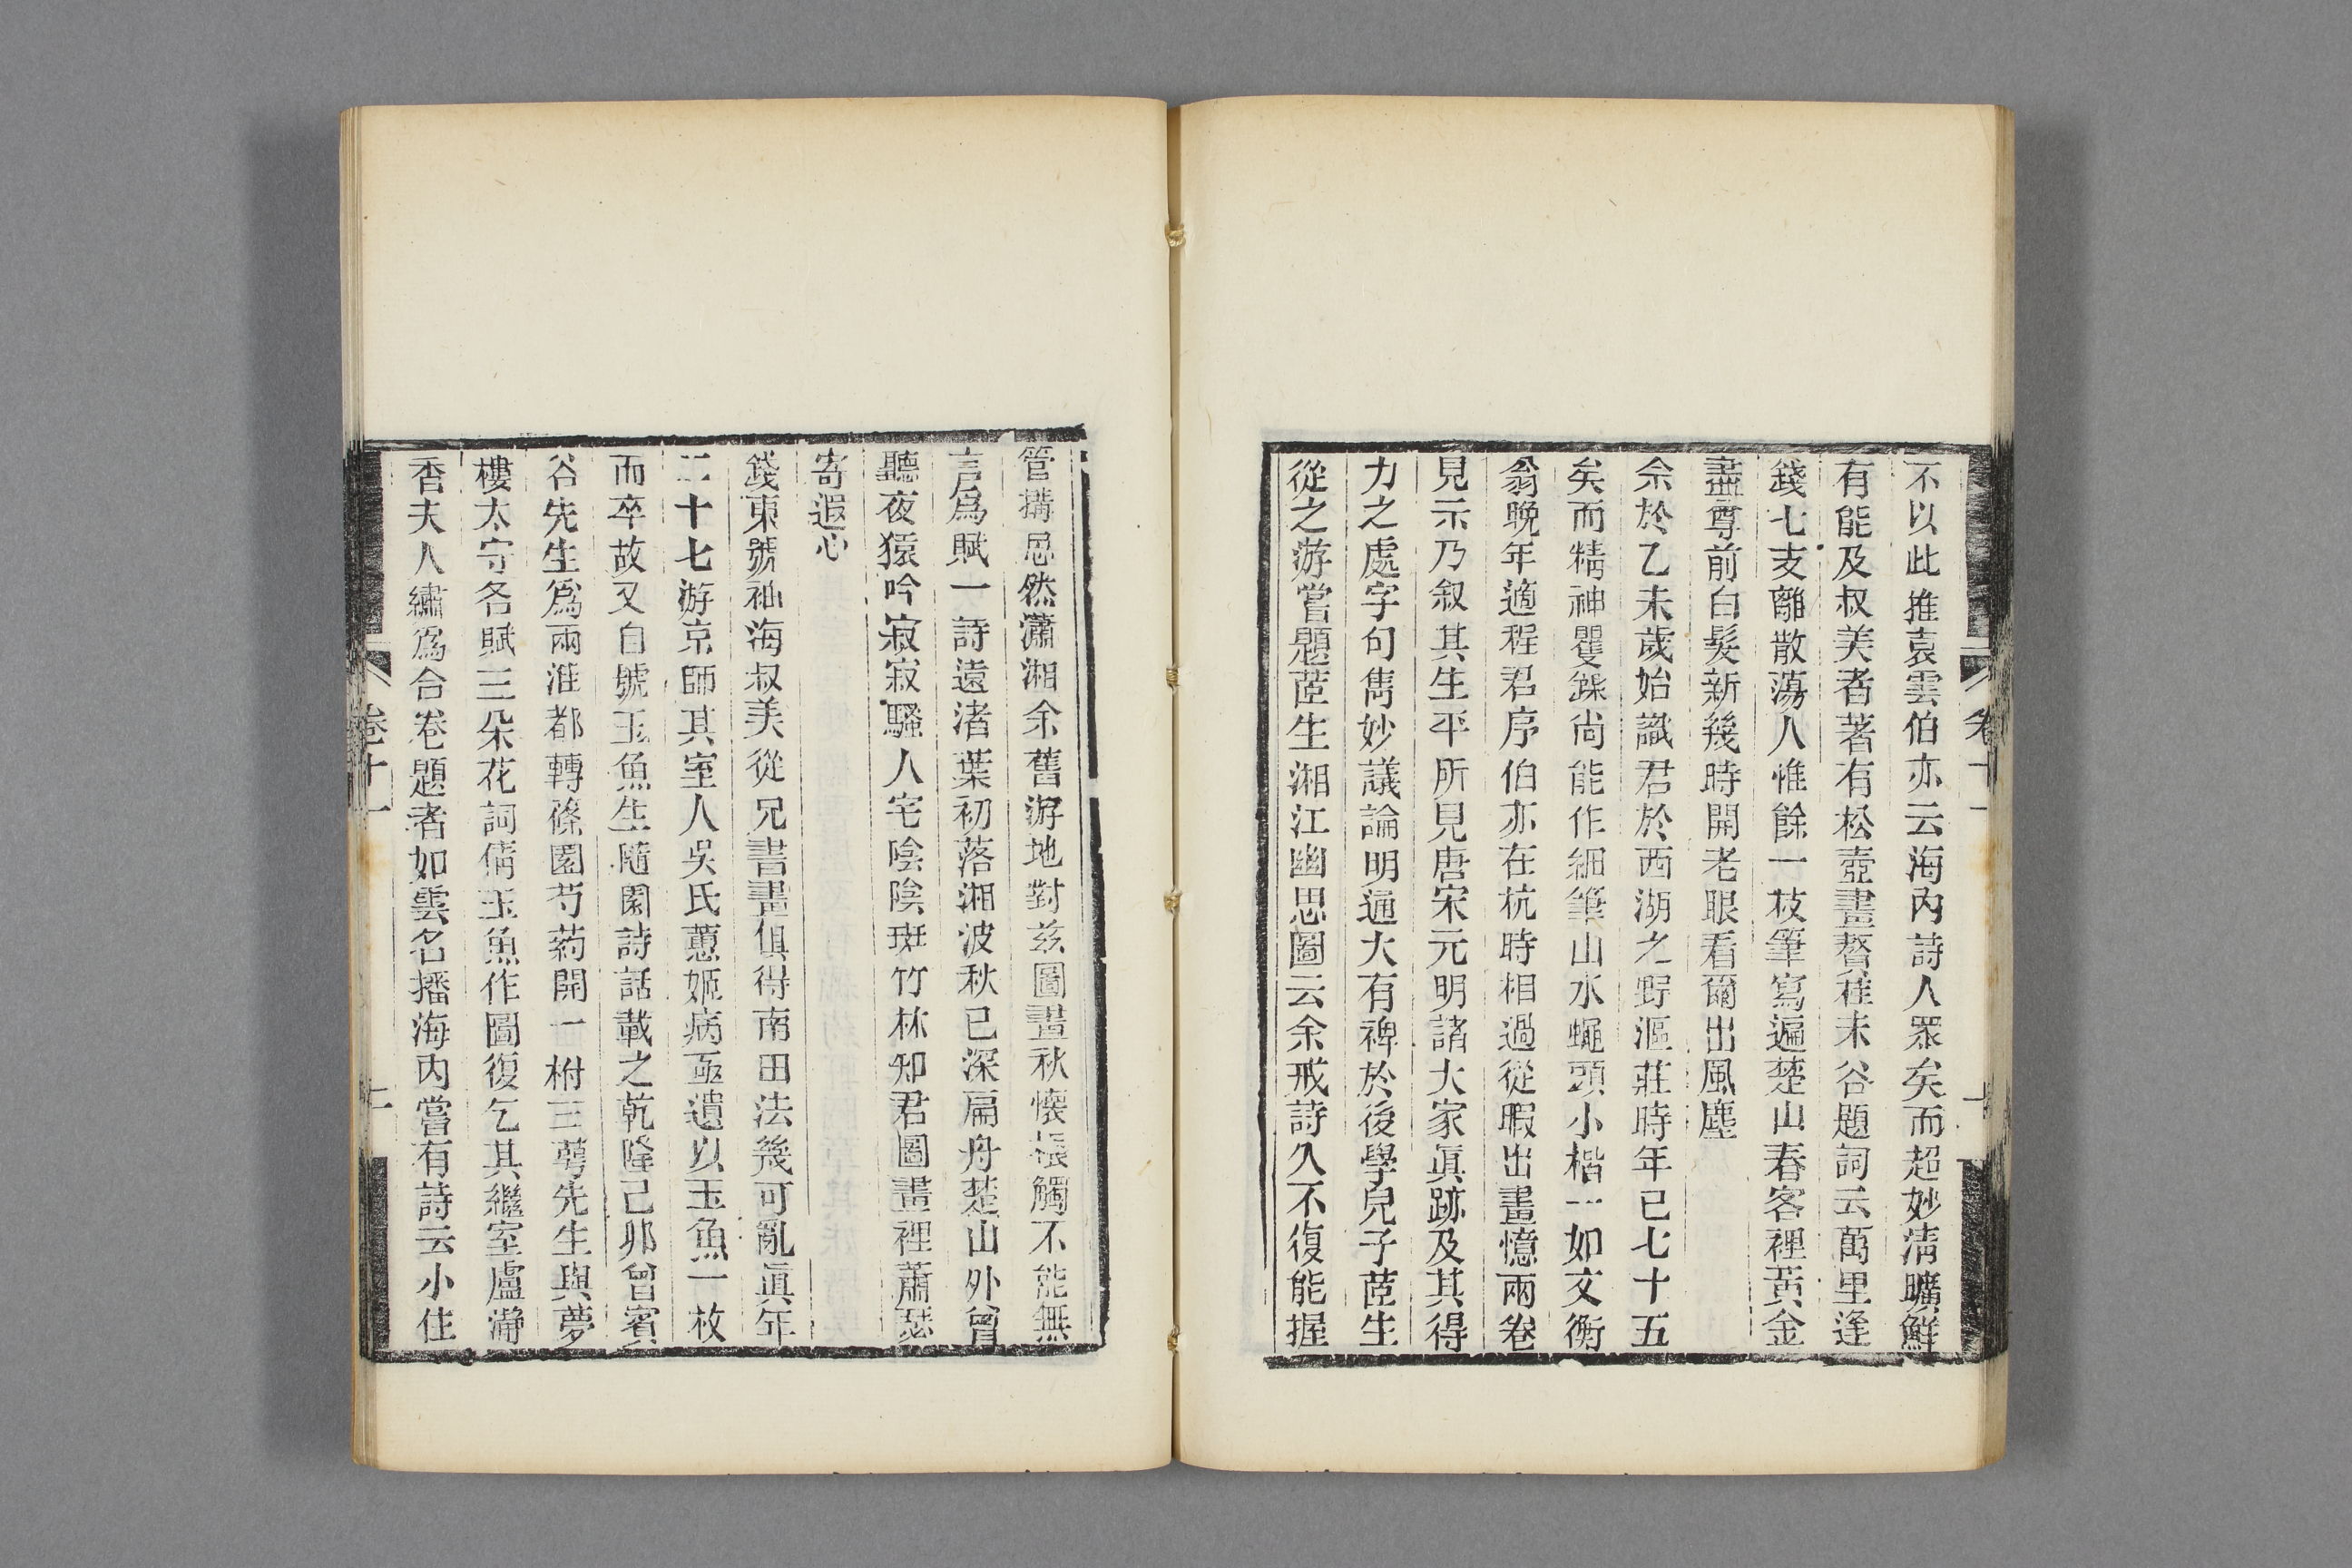 不以此推袁雲伯亦云海內詩人眾矣而超妙清曠鮮
有能及叔美者著有松壺畫贅桂未谷題詞云萬里逢
錢七支離散蕩人惟餘一枝筆寫遍楚山春客裡黃金
盡尊前白髮新幾時開老眼看爾出風塵
余於乙未歲始識君於西湖之野漚莊時年已七十五
矣而精神矍鑠尚能作細筆山水蠅頭小楷一如文衡
翁晚年適程君序伯亦在杭時相過從暇出畫憶兩卷
見示乃叙其生平所見唐宋元明諸大家眞跡及其得
力之處字句雋妙議論明通大有裨於後學兒子茝生
從之游嘗題茝生湘江幽思圖云余戒詩久不復能握
管搆思然瀟湘余舊游地對茲圖畫秋懷振觸不能無
言爲賦一詩遠渚葉初落湘波秋已深扁舟楚山外曾
聽夜猿吟寂寂騷人宅陰陰斑竹林知君圖畫裡蕭瑟
寄遐心
錢東號袖海叔美從兄書畫俱得南田法幾可亂眞年
二十七游京師其室人吳氏蕙姬病亟遺以玉魚一枚
而卒故又自號玉魚生隨園詩話載之乾隆己卯曾賓
谷先生爲兩淮都轉篠園芍葯開一柎三萼先生與夢
樓太守各賦三朵花詞倩玉魚作圖復乞其繼室盧瀞
香夫人繡爲合卷題者如雲名播海內嘗有詩云小住
卷十一
十一